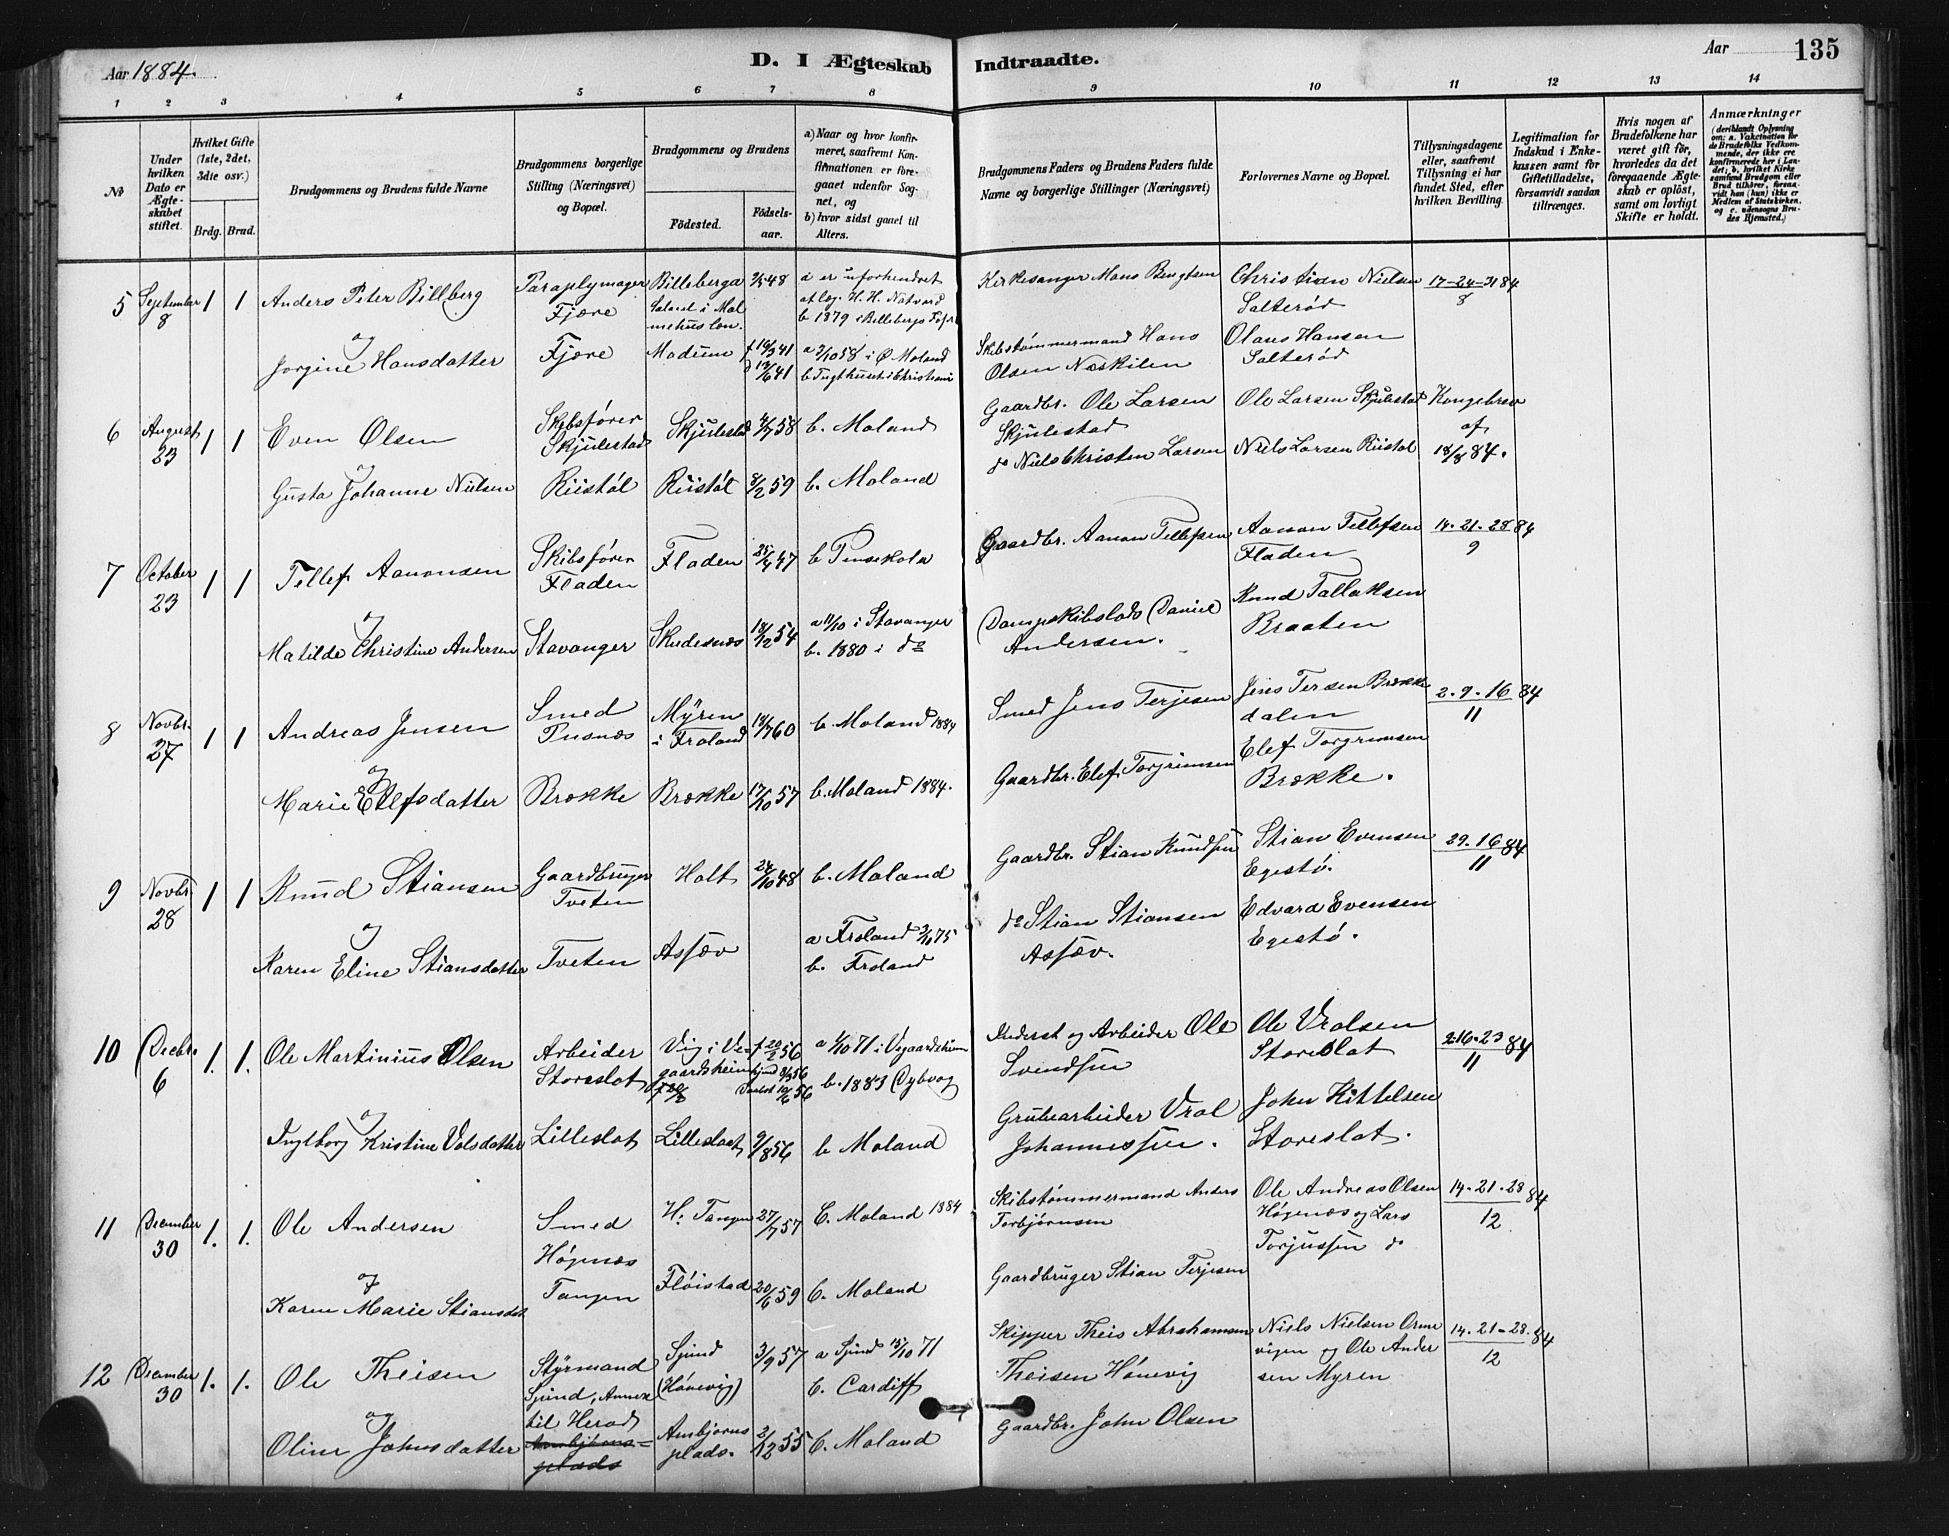 Aar 1884.
D. I Ægteskab Indtraadte.
Aar
135
1 2 3 4 5 6 7 8 9 10 11 12 13 14
No
Under hvilken Dato er Ægteskabet stiftet.
Hvilket Gifte (1ste, 2det, 3die osv.)
Brdg. Brud.
Brudgommens og Brudens fulde Navne
Brudgommens borgerlige Stilling (Næringsvei) og Bopæl.
Brudgommens og Brudens
Fødested.
Fødselsaar.
a) Naar og hvor konfirmeret, saafremt Konfirmationen er foregaaet udenfor Sognet, og
b) hvor sidst gaaet til Alters.
Brudgommens Faders og Brudens Faders fulde Navne og borgerlige Stillinger (Næringsvei)
Forlovernes Navne og Bopæl.
Tillysningsdagene eller, saafremt Tillysning ei har fundet Sted, efter hvilken Bevilling.
Legitimation for Indskud i Enkekassen samt for Giftetilladelse, forsaavidt saadan tiltrænges.
Hvis nogen af Brudefolkene har været gift før, hvorledes da det foregaaende Ægteskab er opløst, samt om lovligt Skifte er holdt.
Anmærkninger
(deriblandt Oplysning om: a. Vakcination for de Brudefolks Vedkommende, der ikke ere konfirmerede her i Landet; b. hvilket Kirkesamfund Brudgom eller Brud tilhører, forsaavidt han (hun) ikke er Medlem af Statskirken, og c. udensogns Brudes Hjemsted.)
5 September 8 1 1 Anders Peter Billberg Paraplymager Fjære Billeberga
a er uforhindret
b 1879 i Billeberga
Kirkesanger Mans Bengtsen Christian Nielsen Salterød 17-24-31 84/8
og
Jorgine Hansdatter Fjære f 19/3 41
a 3/10 58 i Ø Moland
b Tugthuset i Christiania
Skibstømmermand Hans Olsen Næskilen Olaus Hansen Salterød
6 August 23 1 1 Even Olsen Skibsfører Skjulestad Skjulestad 4/7 58 b. Moland Gaardbr. Ole Larsen Skjulestad Ole Larsen Skjulestad Kongebrev af 18/8 84.
og
Gusta Johanne Nielsen Riistøl Riistøl 8/2 59 b. Moland do Niels Christen Larsen Niels Larsen Riistøl
7 October 23 1 1 Tellef Aanonsen Skibsfører Fladen Fladen 25/4 47 b Pusekola Gaardbr. Aanon Tellefsen Aanon Tellefsen Fladen 14-21-28 84/9
og
Matilde Christine Andersen Stavanger Skudesnæs 18/12 54 a 11/10 i Stavanger b. 1880 i do Dampskibslods Daniel Andersen. Knud Tallaksen Braaten
8 Novbr. 27 1 1 Andreas Jensen Smed Pusnæs Myren i Froland 18/7 60 b. Moland 1884 Smed Jens Terjesen Jens Tersen Brækkedalen 2-9-16 84/11
og
Marie Elefsdatter Brække Brække 17/10 57 b. Moland 1884. Gaardbr. Elef Torgrimsen Elef Torgrimsen Brække.
9 Novbr 28 1 1 Knud Stiansen Gaardbruger Tveten Holt 24/10 48 b. Moland Gaardbr. Stian Knudsen Stian Evensen Egestø. 29.16 84/11
og
Karen Eline Stiansdatter Tveten Assæv a Froland 3/10 75 b. Froland do Stian Stiansen Assæv. Edvard Evensen Egestø.
10 Decbr. 6 1. 1. Ole Martinius Olsen Arbeider Storeslot Vig i Vegaardsheim a 1/10 71 i Vegaardsheim b. 1883 Dybvog Inderst og Arbeider Ole Svendsen Ole Vralsen Storeslot 2.16-23 84/11
og
Ingeborg Kristine Valsdatter Lilleslot Lilleslot 9/8 56 b Moland Grubearbeider Vral Johannessen. John Kittelsen Storeslot.
11 December 30 1. 1. Ole Andersen Smed Høgenæs H. Tangen 27/7 57 b. Moland 1884 Skibstømmermand Anders Torbjørnsen Ole Andreas Olsen Høgenæs og Lars Torjussen do 14-21-28 84/12
og
Karen Marie Stiansdat Tangen Fløistad 20/6 59 b. Moland Gaardbruger Stian Terjesen
12 December 30 1. 1. Ole Theisen Styrmand Spind, Annex til Herad Spind (Hønevig) 3/9 57 a Spind 15/10 71 b. Cardiff Skipper Theis Abrahamsen Theisen Hønevig Niels Nielsen Ormevigen og Ole Andersen Myren 14-21-28. 84/12
og
Oline Johnsdatter Ambjørnsplads Ambjørnsplads. 2/12 55 b. Moland Gaardbr. John Olsen